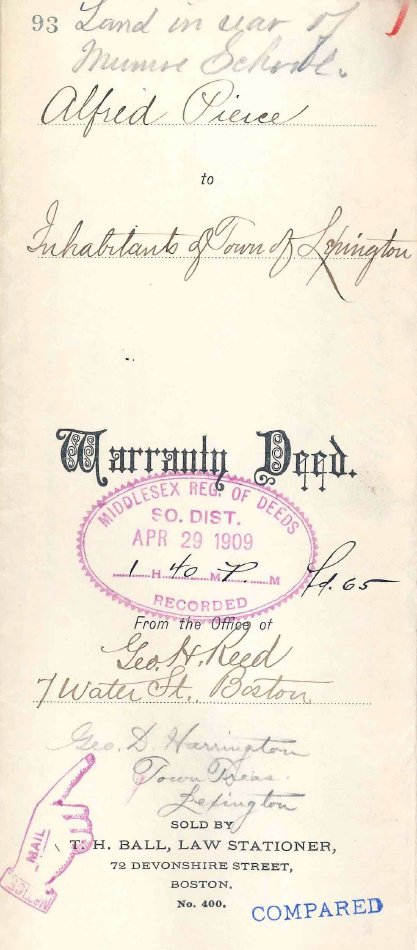 93 Land in rear of
Munroe School.
Alfred Pierce
to
Inhabitants of Town of Lexington
Warranty Deed.
MIDDLESEX REG. OF DEEDS
SO. DIST.
APR 29 1909
1 H 40 M P. M
RECORDED
Pd. 65
From the Office of
Geo. H. Reed
7 Water St., Boston
Geo. D. Harrington
Town Treas.
Lexington
MAIL
SOLD BY
T. H. BALL, LAW STATIONER,
72 DEVONSHIRE STREET,
BOSTON.
No. 400.
COMPARED